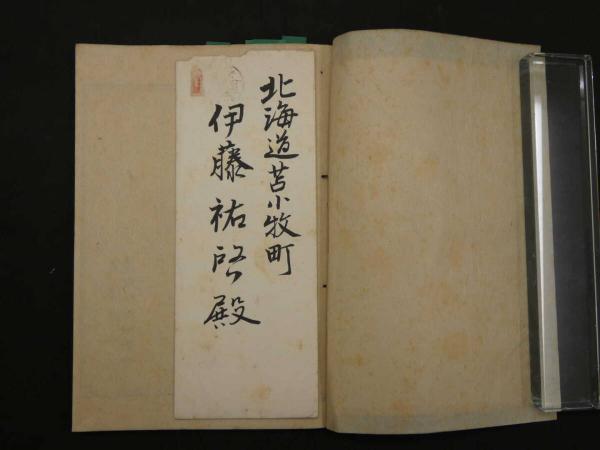 北海道苫小牧町
伊藤祐啓殿